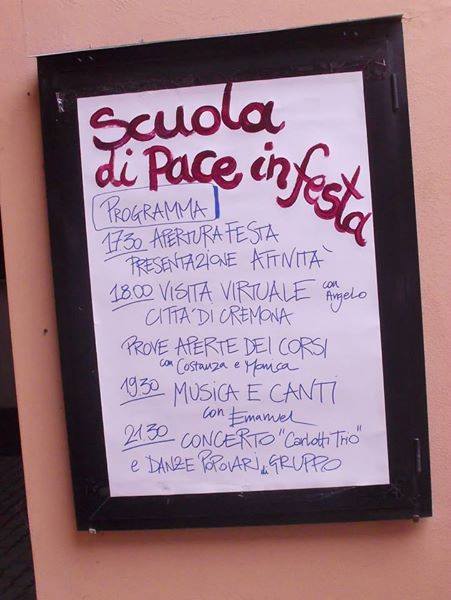 Scuola
di Pace in festa
PROGRAMMA
17.30 APERTURA FESTA
PRESENTAZIONE ATTIVITÀ
18.00 VISITA VIRTUALE con Angelo
CITTÀ DI CREMONA
PROVE APERTE DEI CORSI
con Costanza e Monica
19.30 MUSICA E CANTI
con Emanuel
21.30 CONCERTO "Carlotti Trio"
e DANZE POPOLARI di GRUPPO